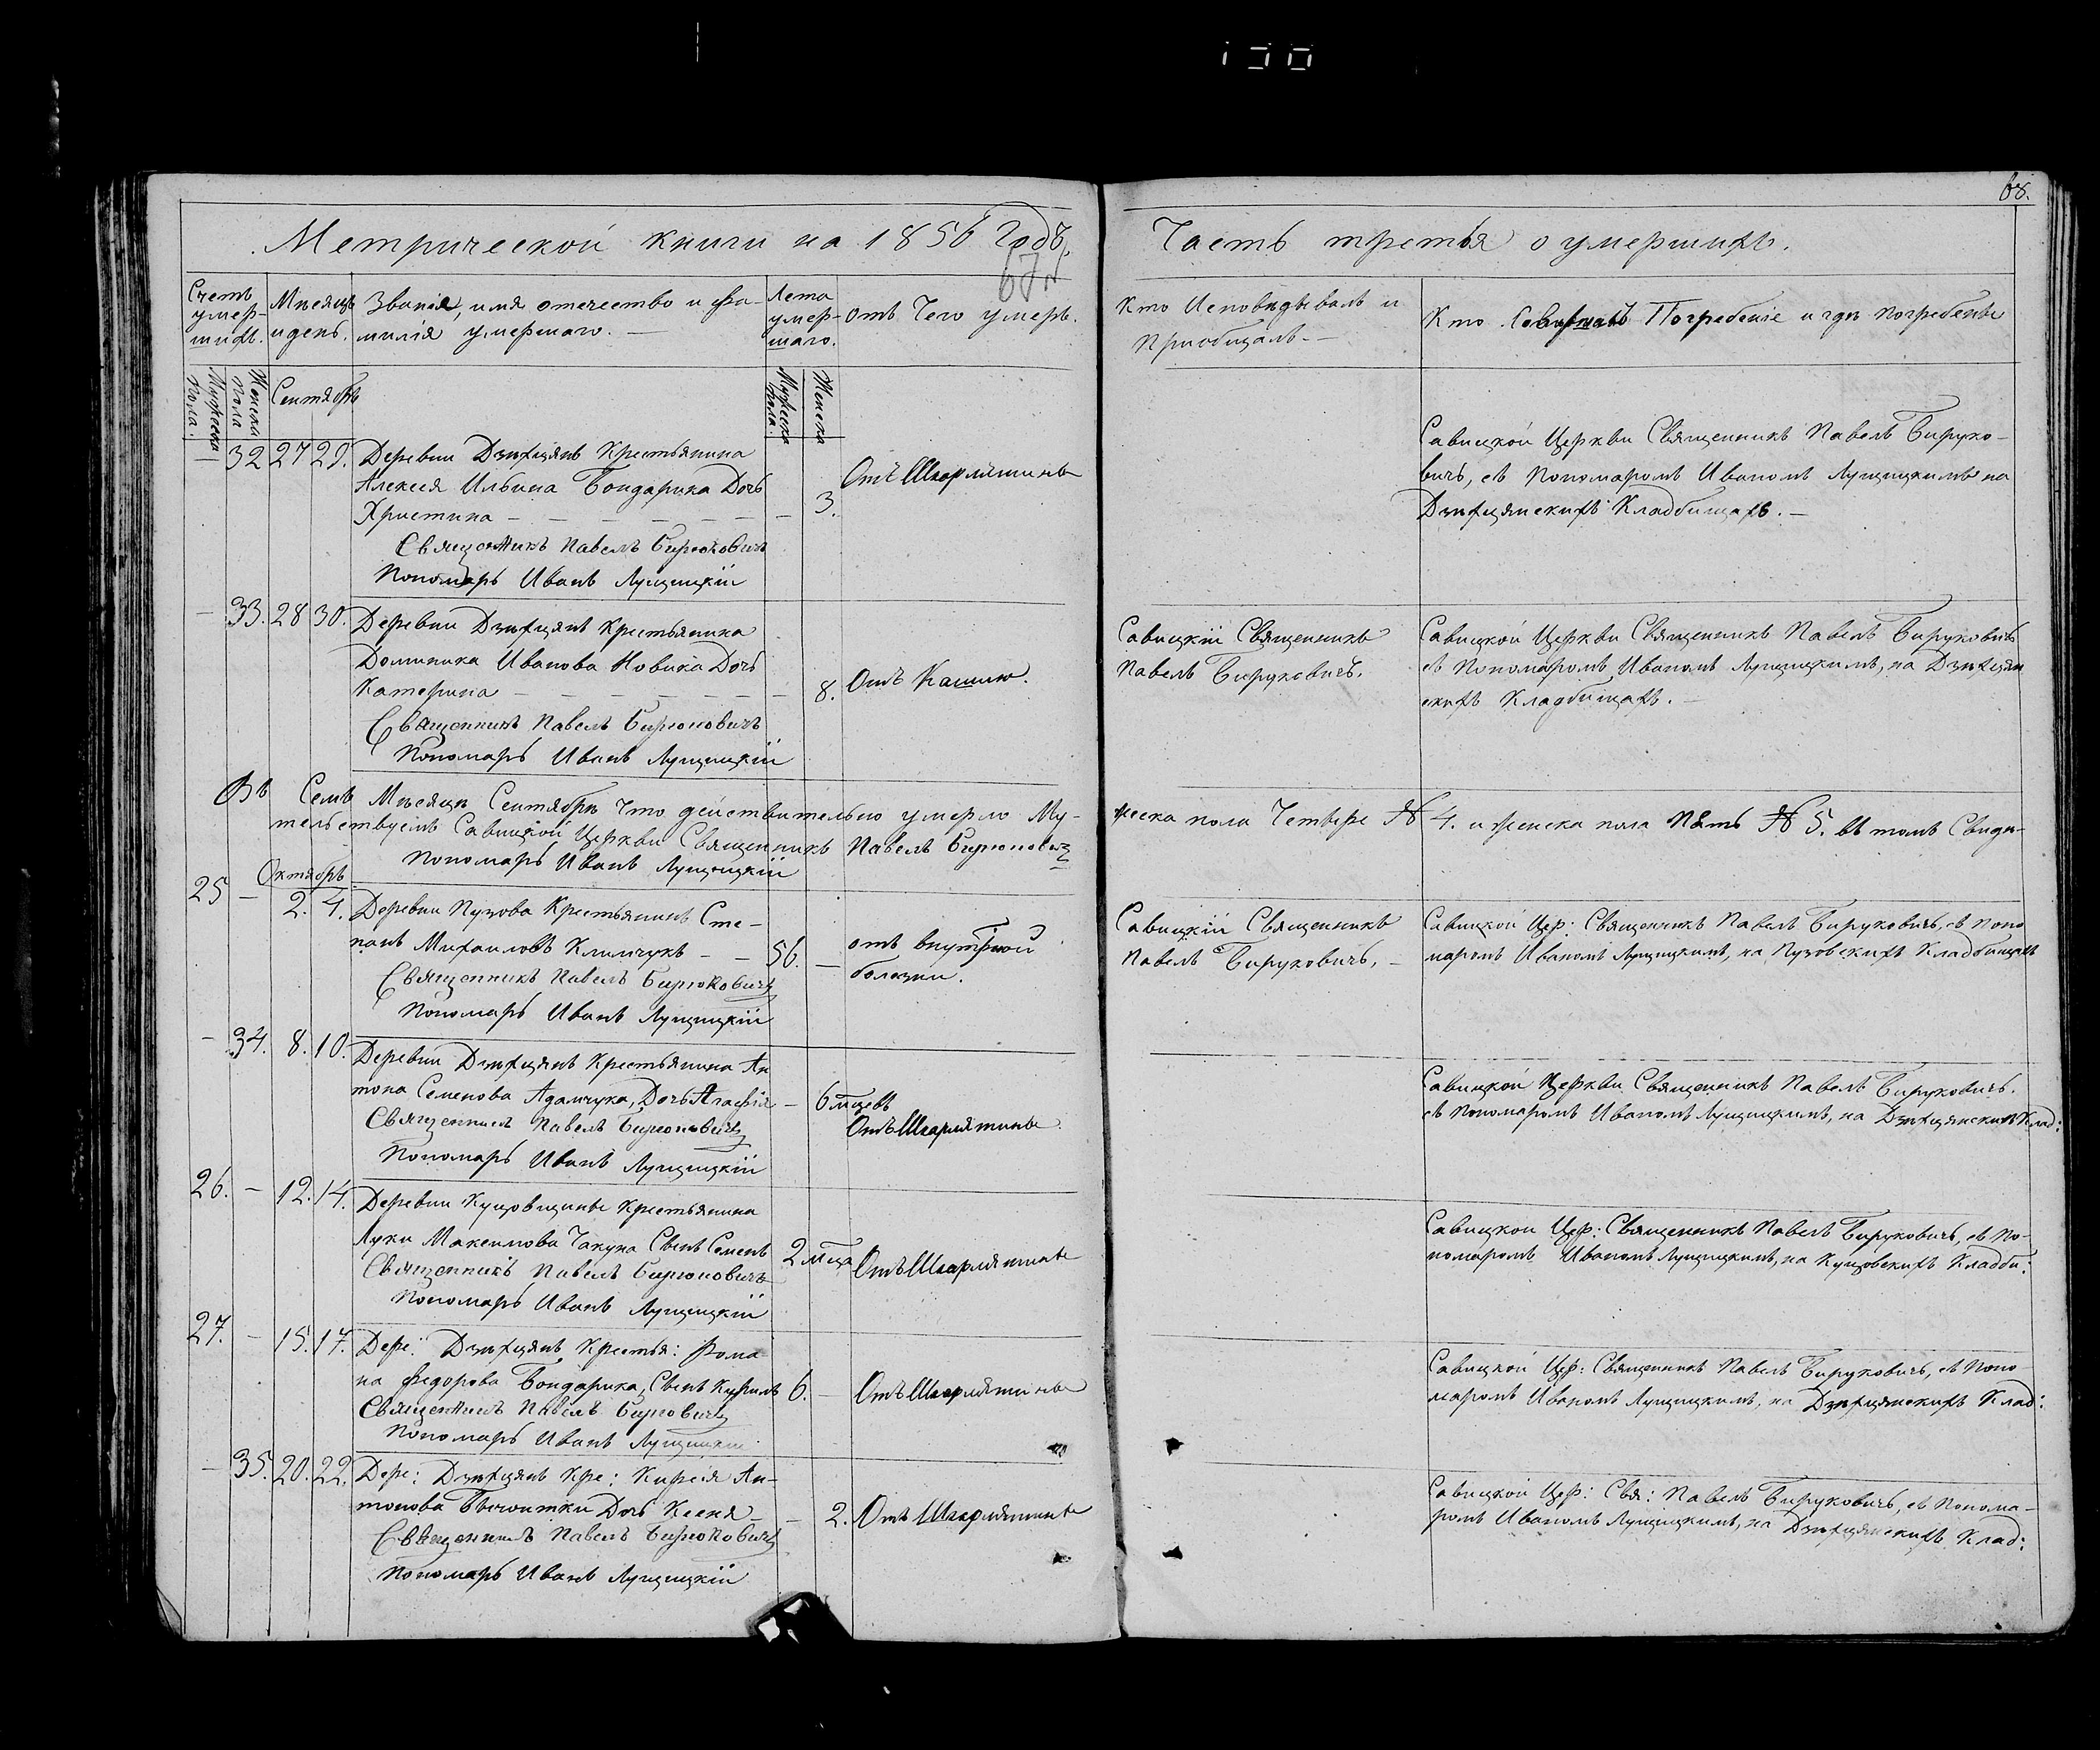 68.
Метрической книги на 1856 Годъ.
Часть третья о умершихъ.
Счетъ умер-шихъ.
Мѣсяцъ и день.
Званіе, имя отечество и фа-
милія умершаго. —
Лета умер-шаго.
отъ Чего умеръ.
Кто Исповѣдывалъ и
Пріобщалъ. —
Кто Совершалъ Погребеніе и гдѣ погребены
Мужеска пола.
Женска пола
Сентябрь
Мужеска пола.
Женска
— 32 27 29. Деревни Дзѣхцянъ Крестьянина
Алексея Ильина Бондарика Дочь
Христина — — — — — — 3.
Отъ Шкарлятины
Священникъ Павелъ Бирюковичъ
Пономарь Иванъ Лущицкій
Савицкой Церкви Священникъ Павелъ Бируко-
вичъ, съ Пономаромъ Иваномъ Лущицкимъ на
Дзѣхцянскихъ Кладбищахъ. —
— 33. 28 30. Деревни Дзѣхцянъ Крестьянина
Доминика Иванова Новика Дочь
Катерина — — — — — — 8. Отъ Кашлю.
Священникъ Павелъ Бирюковичъ
Пономарь Иванъ Лущицкій
Савицкій Священникъ
Павелъ Бируковичъ.
Савицкой Церкви Священникъ Павелъ Бируковичъ
съ Пономаромъ Иваномъ Лущицкимъ, на Дзѣхцян
скихъ Кладбищахъ. —
Въ Семъ Мѣсяцѣ Сентябрѣ что действительно умерло Му-
жеска пола Четвере № 4. и женска пола пять № 5. въ томъ Свидѣ-
тельствуемъ Савицкой Церкви Священникъ Павелъ Бирюковичъ
Пономарь Иванъ Лущицкій
Октябрь
25 — 2. 4. Деревни Пузова Крестьянинъ Сте-
панъ Михаиловъ Климчукъ — — 56. —
отъ внутрной
болезни.
Священникъ Павелъ Бирюковичъ
Пономарь Иванъ Лущицкій
Савицкій Священникъ
Павелъ Бируковичъ, —
Савицкой Цер: Священникъ Павелъ Бируковичъ, съ Поно
маромъ Иваномъ Лущицкимъ, на Пузовскихъ Кладбищахъ
— 34. 8. 10. Деревни Дзѣхцянъ Крестьянина Ан
тона Семенова Адамчука, Дочь Агафія — 6 мцевъ
Отъ Шкарлятины.
Священникъ Павелъ Бирюковичъ
Пономарь Иванъ Лущицкій
Савицкой Церкви Священникъ Павелъ Бируковичъ.
съ Пономаромъ Иваномъ Лущицкимъ, на Дзѣхцянскихъ Клад:
26. — 12. 14. Деревни Куцовщины Крестьянина
Луки Максимова Чакуна Сынъ Семенъ 2 мца Отъ Шкарлятины
Священникъ Павелъ Бирюковичъ
Пономарь Иванъ Лущицкій
Савицкой Цер: Священникъ Павелъ Бируковичъ, съ По-
номаромъ Иваномъ Лущицкимъ, на Куцовскихъ Кладби:
27. — 15. 17. Дере: Дзѣхцянъ Крестья: Рома-
на Федорова Бондарика, Сынъ Кирилъ 6. — Отъ Шкарлятины
Священникъ Павелъ Бирюковичъ
Пономарь Иванъ Лущицкій
Савицкой Цер: Священникъ Павелъ Бируковичъ, съ Поно
маромъ Иваномъ Лущицкимъ, на Дзѣхцянскихъ Клад:
— 35. 20. 22. Дере: Дзѣхцянъ Кре: Кирея Ан-
тонова Дочь Ксеня — — 2. Отъ Шкарлятины
Священникъ Павелъ Бирюковичъ
Пономарь Иванъ Лущицкій
Савицкой Цер: Свя: Павелъ Бируковичъ, съ Понома-
ромъ Иваномъ Лущицкимъ, на Дзѣхцянскихъ Клад: